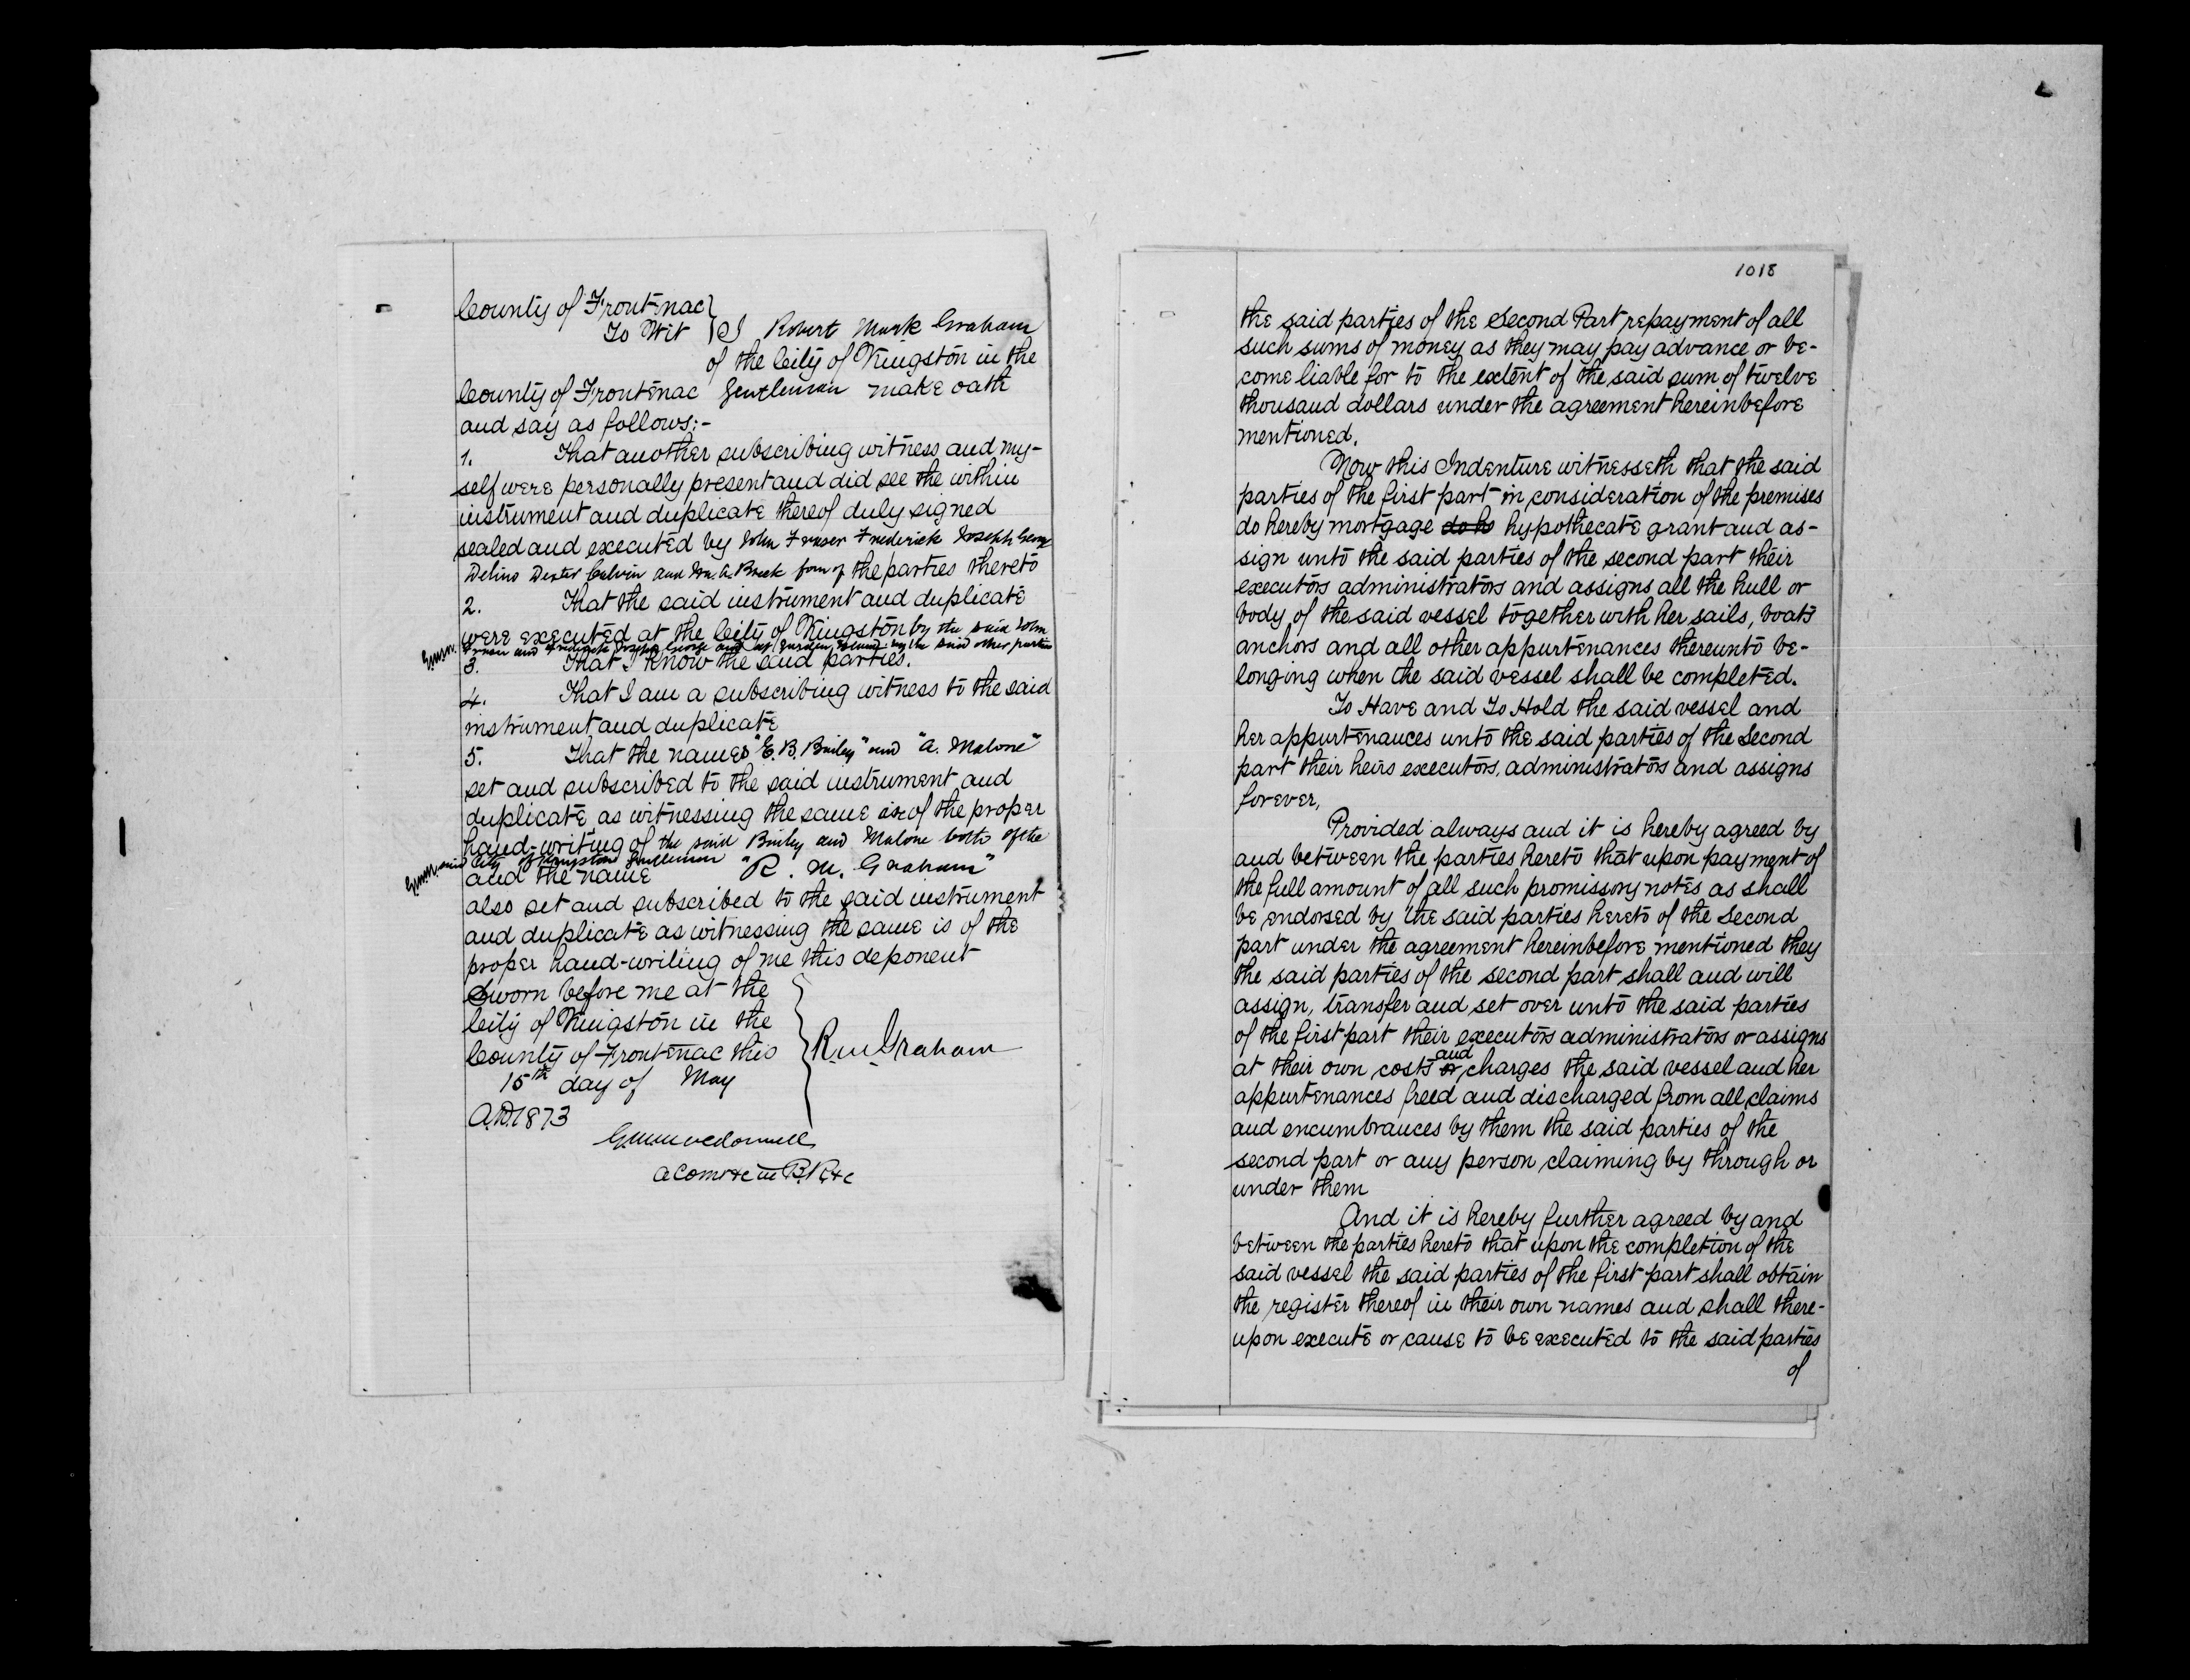 County of Frontenac
To Wit } I Robert Mark Graham
of the City of Kingston in the
County of Frontenac Gentleman make oath
and say as follows:-
1. That another subscribing witness and my-
self were personally present and did see the within
instrument and duplicate thereof duly signed
sealed and executed by John Fraser Frederick Joseph George
Delino Dexter Calvin and Ira. A. Breck four of the parties thereto
2. That the said instrument and duplicate
were executed at the City of Kingston by the said John
Fraser and Frederick Joseph George and at Garden Island by the said other parties
3. That I know the said parties.
4. That I am a subscribing witness to the said
instrument and duplicate
5. That the names "E. B. Bailey" and "A. Malone"
set and subscribed to the said instrument and
duplicate as witnessing the same is of the proper
hand-writing of the said Bailey and Malone both of the
said City of Kingston Gentlemen
and the name "R. M. Graham"
also set and subscribed to the said instrument
and duplicate as witnessing the same is of the
proper hand-writing of me this deponent
Sworn before me at the
City of Kingston in the
County of Frontenac this
15th day of May
A.D. 1873
R. M. Graham
A Comr &c in B.R. &c
1018
the said parties of the Second Part repayment of all
such sums of money as they may pay advance or be-
come liable for to the extent of the said sum of twelve
thousand dollars under the agreement hereinbefore
mentioned.
Now this Indenture witnesseth that the said
parties of the first part in consideration of the premises
do hereby mortgage do he hypothecate grant and as-
sign unto the said parties of the second part their
executors administrators and assigns all the hull or
body of the said vessel together with her sails, boats
anchors and all other appurtenances thereunto be-
longing when the said vessel shall be completed.
To Have and To Hold the said vessel and
her appurtenances unto the said parties of the Second
part their heirs executors, administrators and assigns
forever,
Provided always and it is hereby agreed by
and between the parties hereto that upon payment of
the full amount of all such promissory notes as shall
be endorsed by the said parties hereto of the Second
part under the agreement hereinbefore mentioned they
the said parties of the second part shall and will
assign, transfer and set over unto the said parties
of the first part their executors administrators or assigns
at their own costs or and charges the said vessel and her
appurtenances freed and discharged from all claims
and encumbrances by them the said parties of the
second part or any person claiming by through or
under them
And it is hereby further agreed by and
between the parties hereto that upon the completion of the
said vessel the said parties of the first part shall obtain
the register thereof in their own names and shall there-
upon execute or cause to be executed to the said parties
of